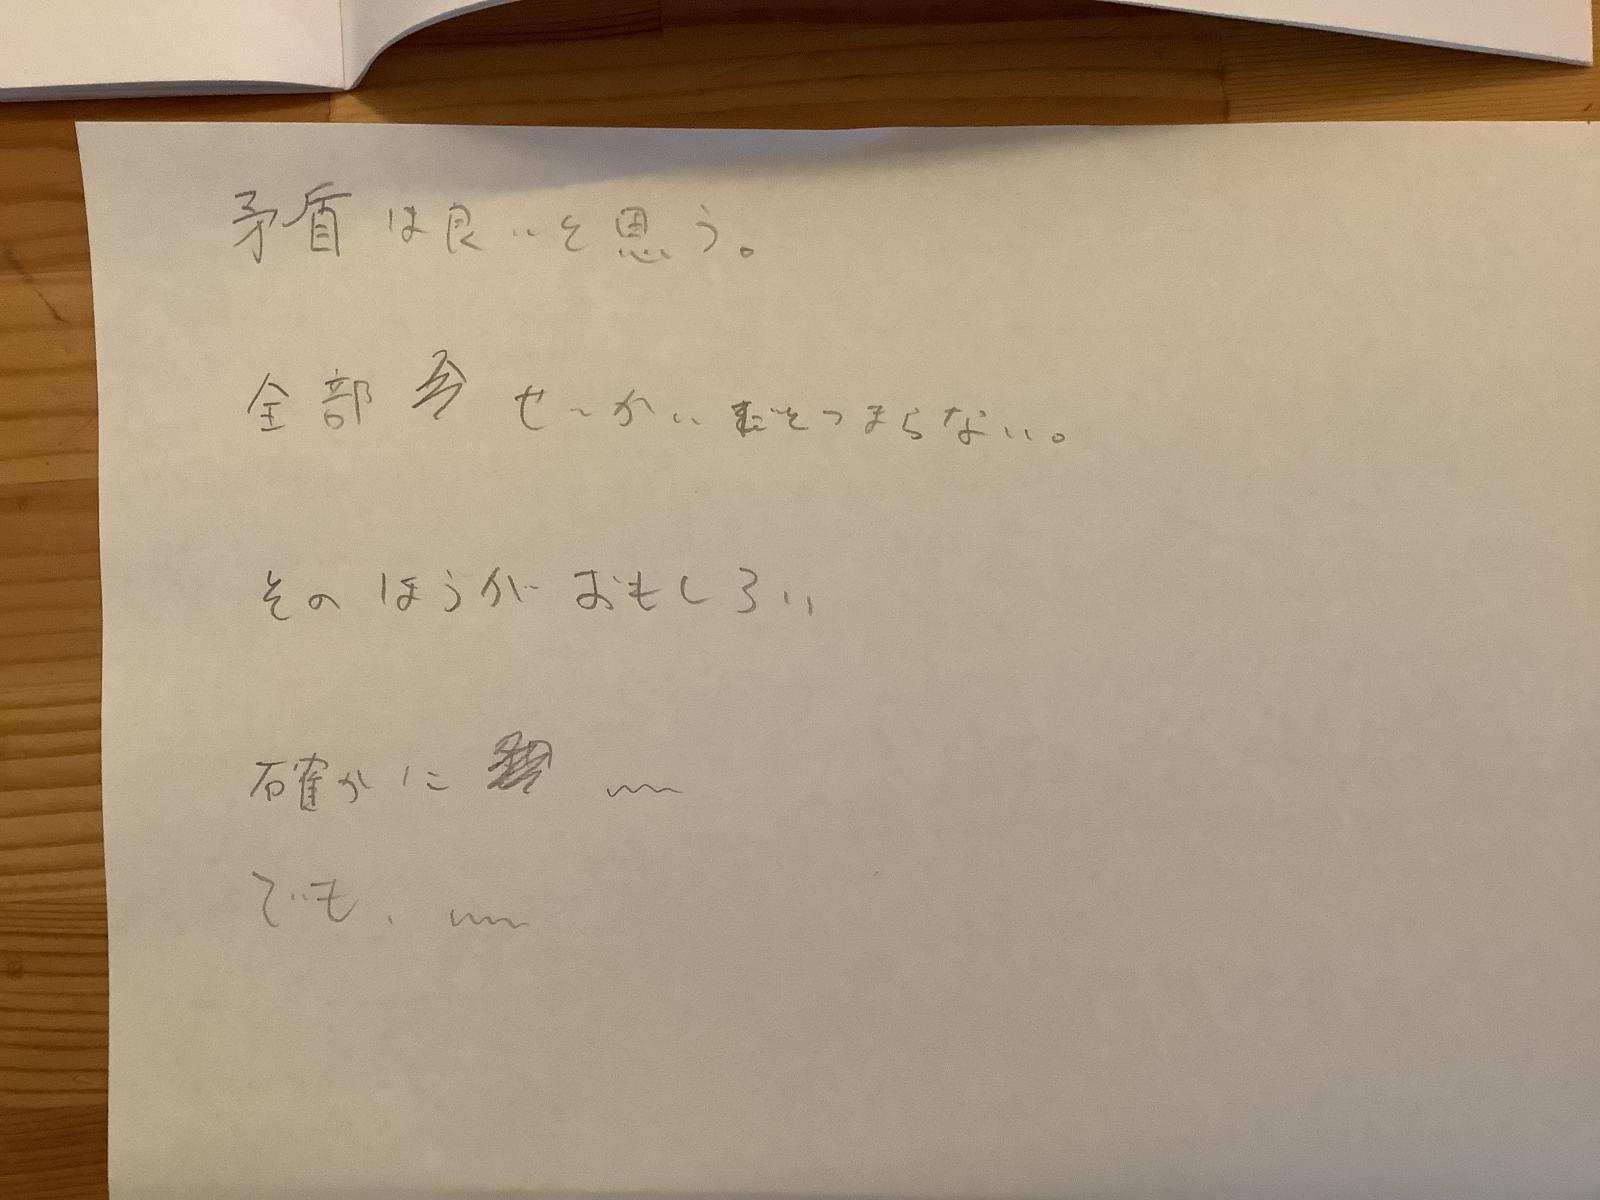 矛盾は良いと思う。
全部 せーかいだとつまらない。
そのほうがおもしろい
確かに 〰
でも、〰